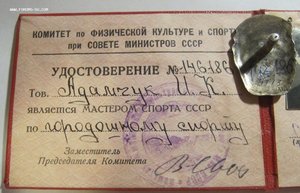 КОМИТЕТ ПО ФИЗИЧЕСКОЙ КУЛЬТУРЕ И СПОРТУ
при СОВЕТЕ МИНИСТРОВ СССР
УДОСТОВЕРЕНИЕ №146186
Тов. Адамчук И. К.
является МАСТЕРОМ СПОРТА СССР
по городошному спорту
Заместитель
Председателя Комитета